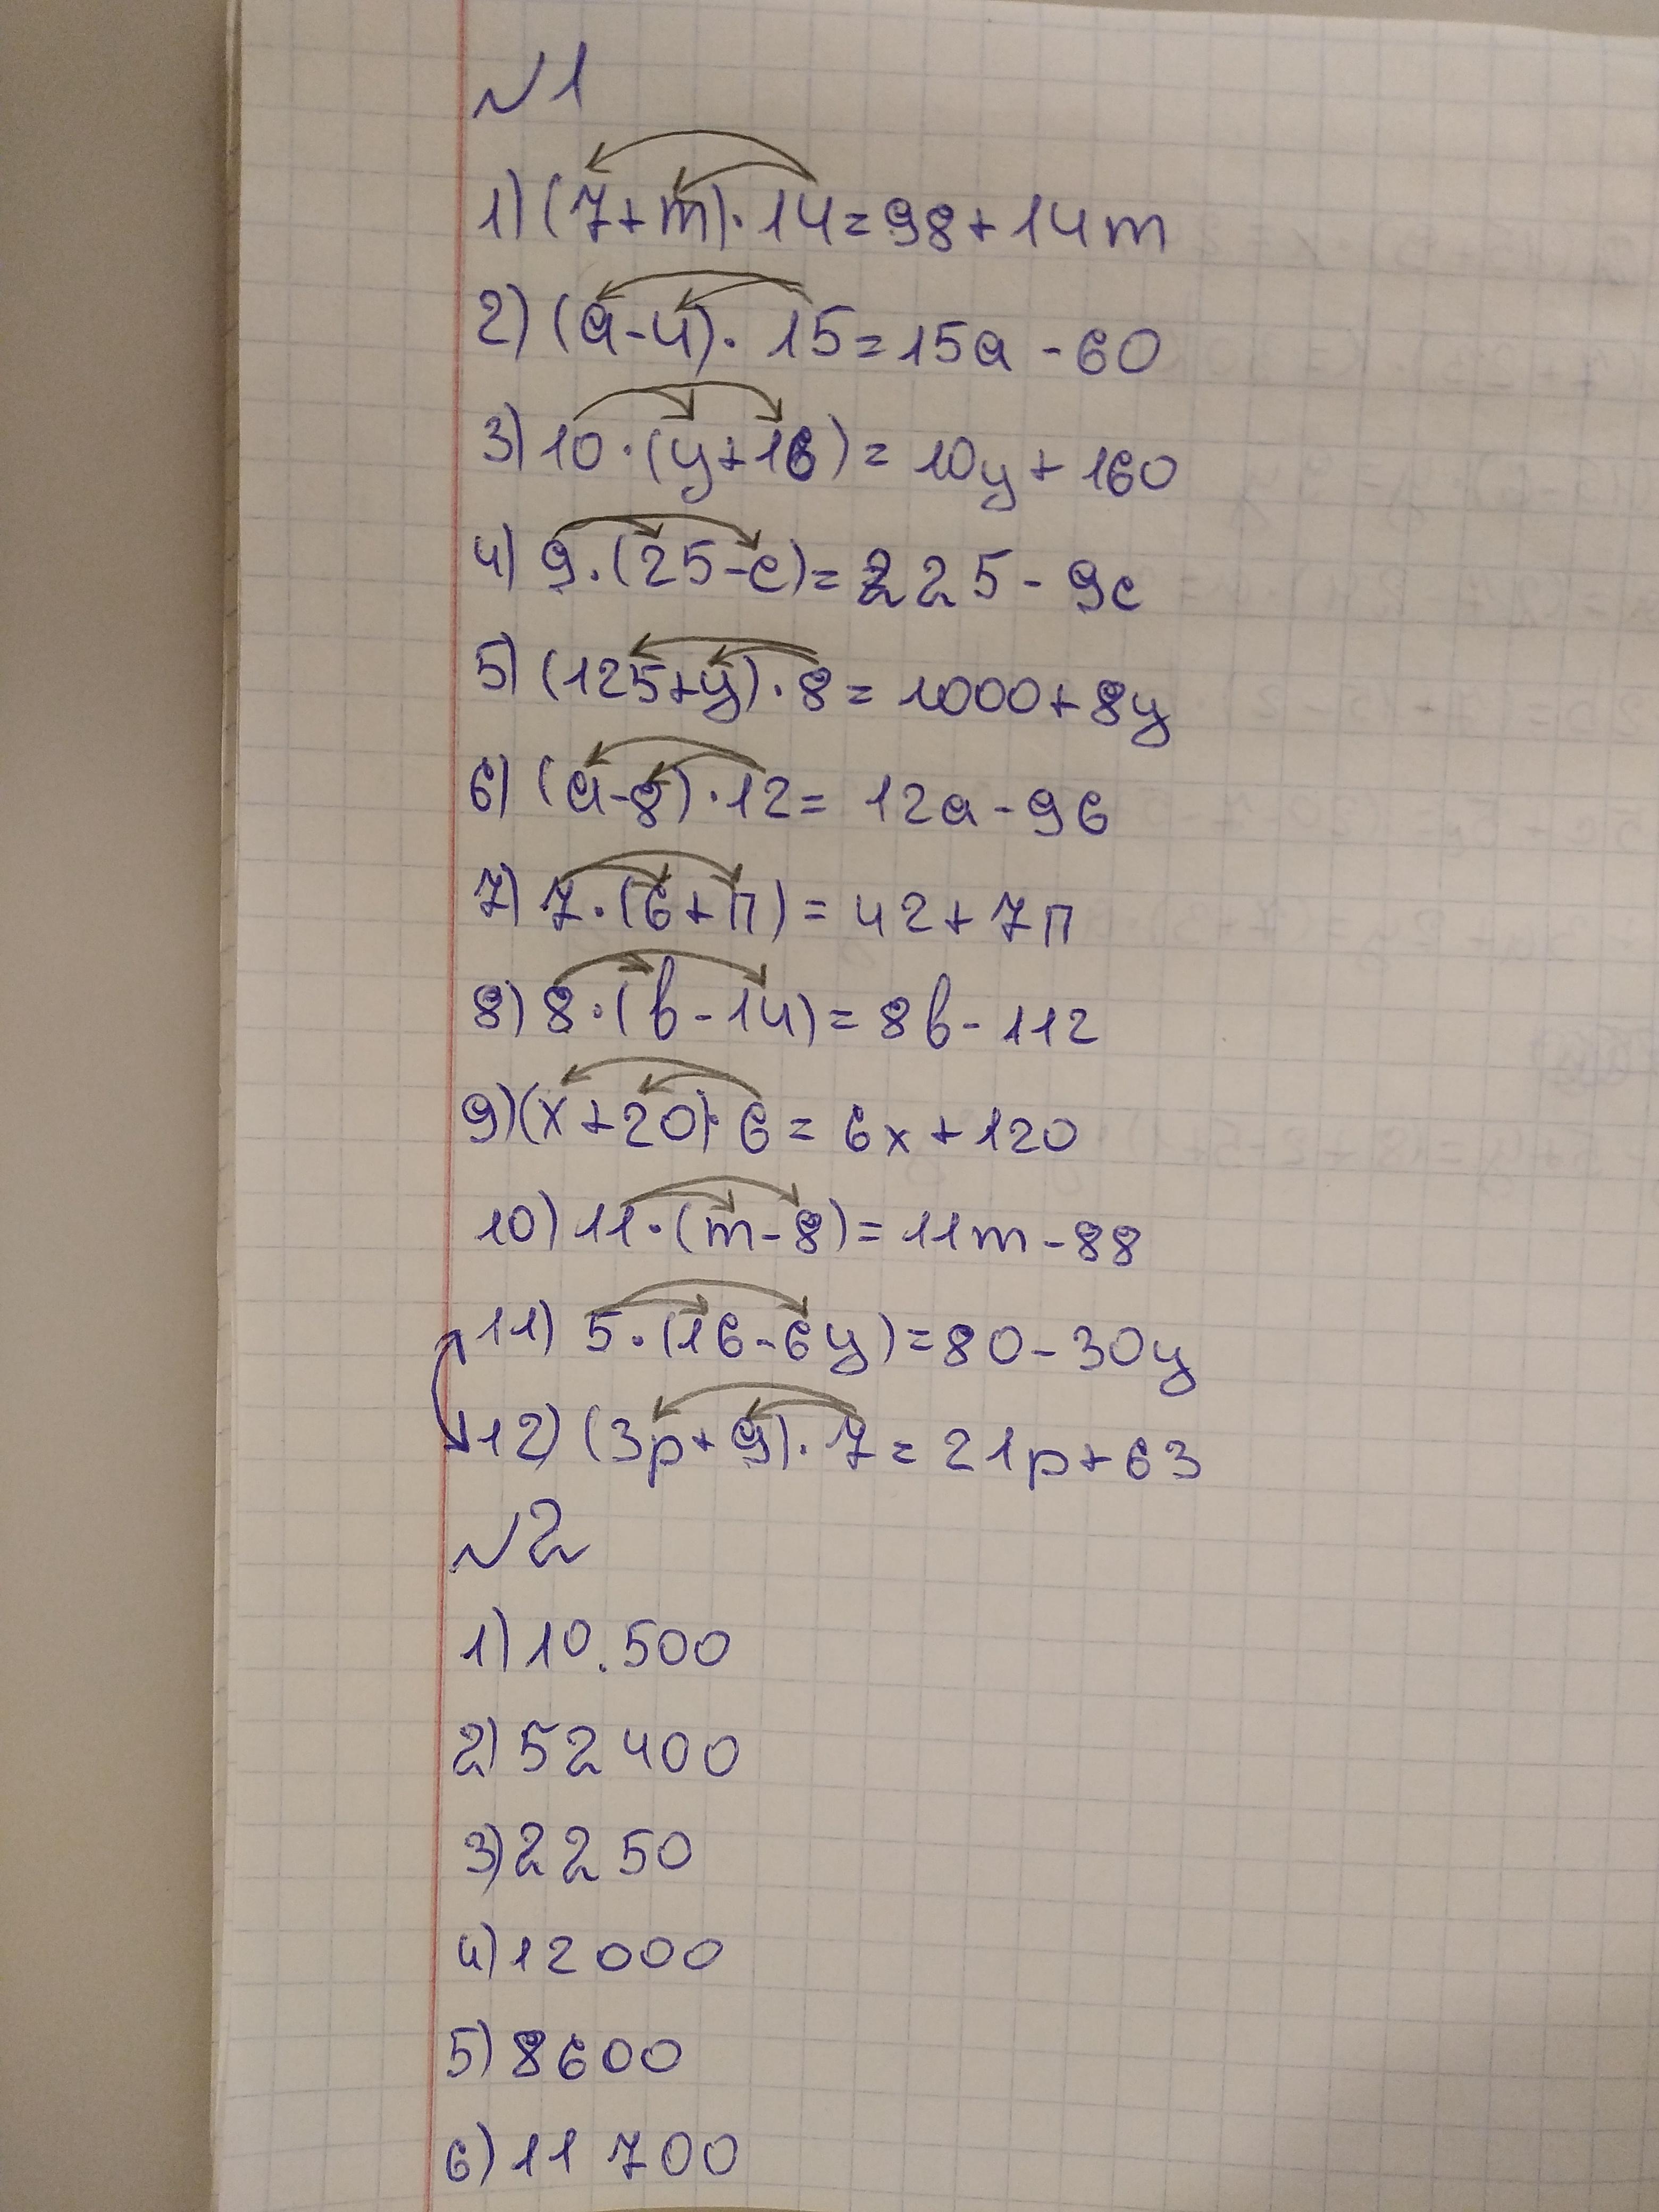 №1
1) (7+m)·14=98+14m
2) (a-4)·15=15a-60
3) 10·(y+16)=10y+160
4) 9·(25-c)=225-9c
5) (125+y)·8=1000+8y
6) (a-8)·12=12a-96
7) 7·(6+п)=42+7п
8) 8·(b-14)=8b-112
9) (x+20)·6=6x+120
10) 11·(m-8)=11m-88
11) 5·(16-6y)=80-30y
12) (3p+9)·7=21p+63
№2
1) 10.500
2) 52400
3) 2250
4) 12000
5) 8600
6) 11700